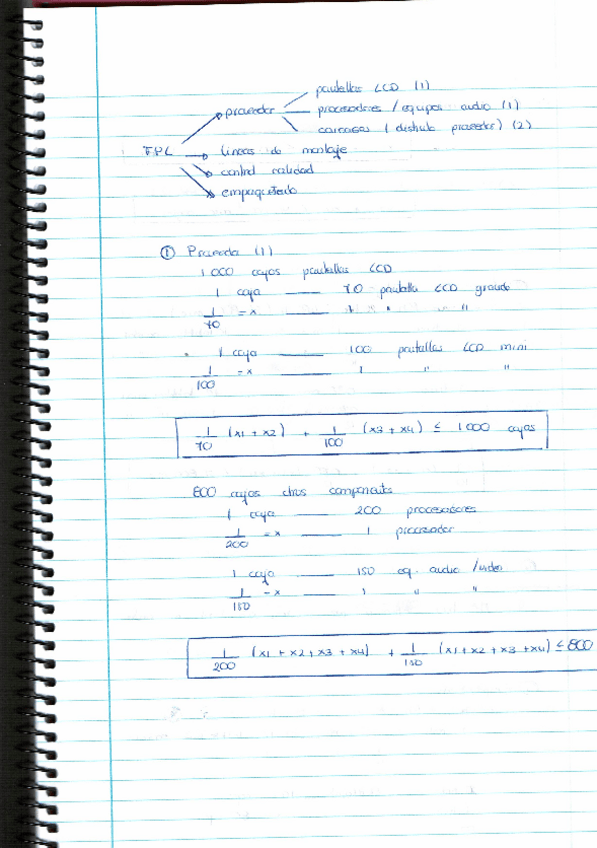 pantallas LCD (1)
proveedor procesadores / equipos audio (1)
carcasas ( distinto proveedor) (2)
líneas de montaje
control calidad
empaquetado
① Proveedor (1)
1000 cajas pantallas LCD
1 caja —— 70 pantalla LCD grande
1/70 = x —— 1 " " "
1 caja —— 100 pantallas LCD mini
1/100 = x —— 1 " "
1/70 (x1 + x2) + 1/100 (x3 + x4) ≤ 1000 cajas
800 cajas otros components
1 caja —— 200 procesadores
1/200 = x —— 1 procesador
1 caja —— 150 eq. audio /video
1/150 = x —— 1 " "
1/200 (x1 + x2 + x3 + x4) + 1/150 (x1 + x2 + x3 + x4) ≤ 800